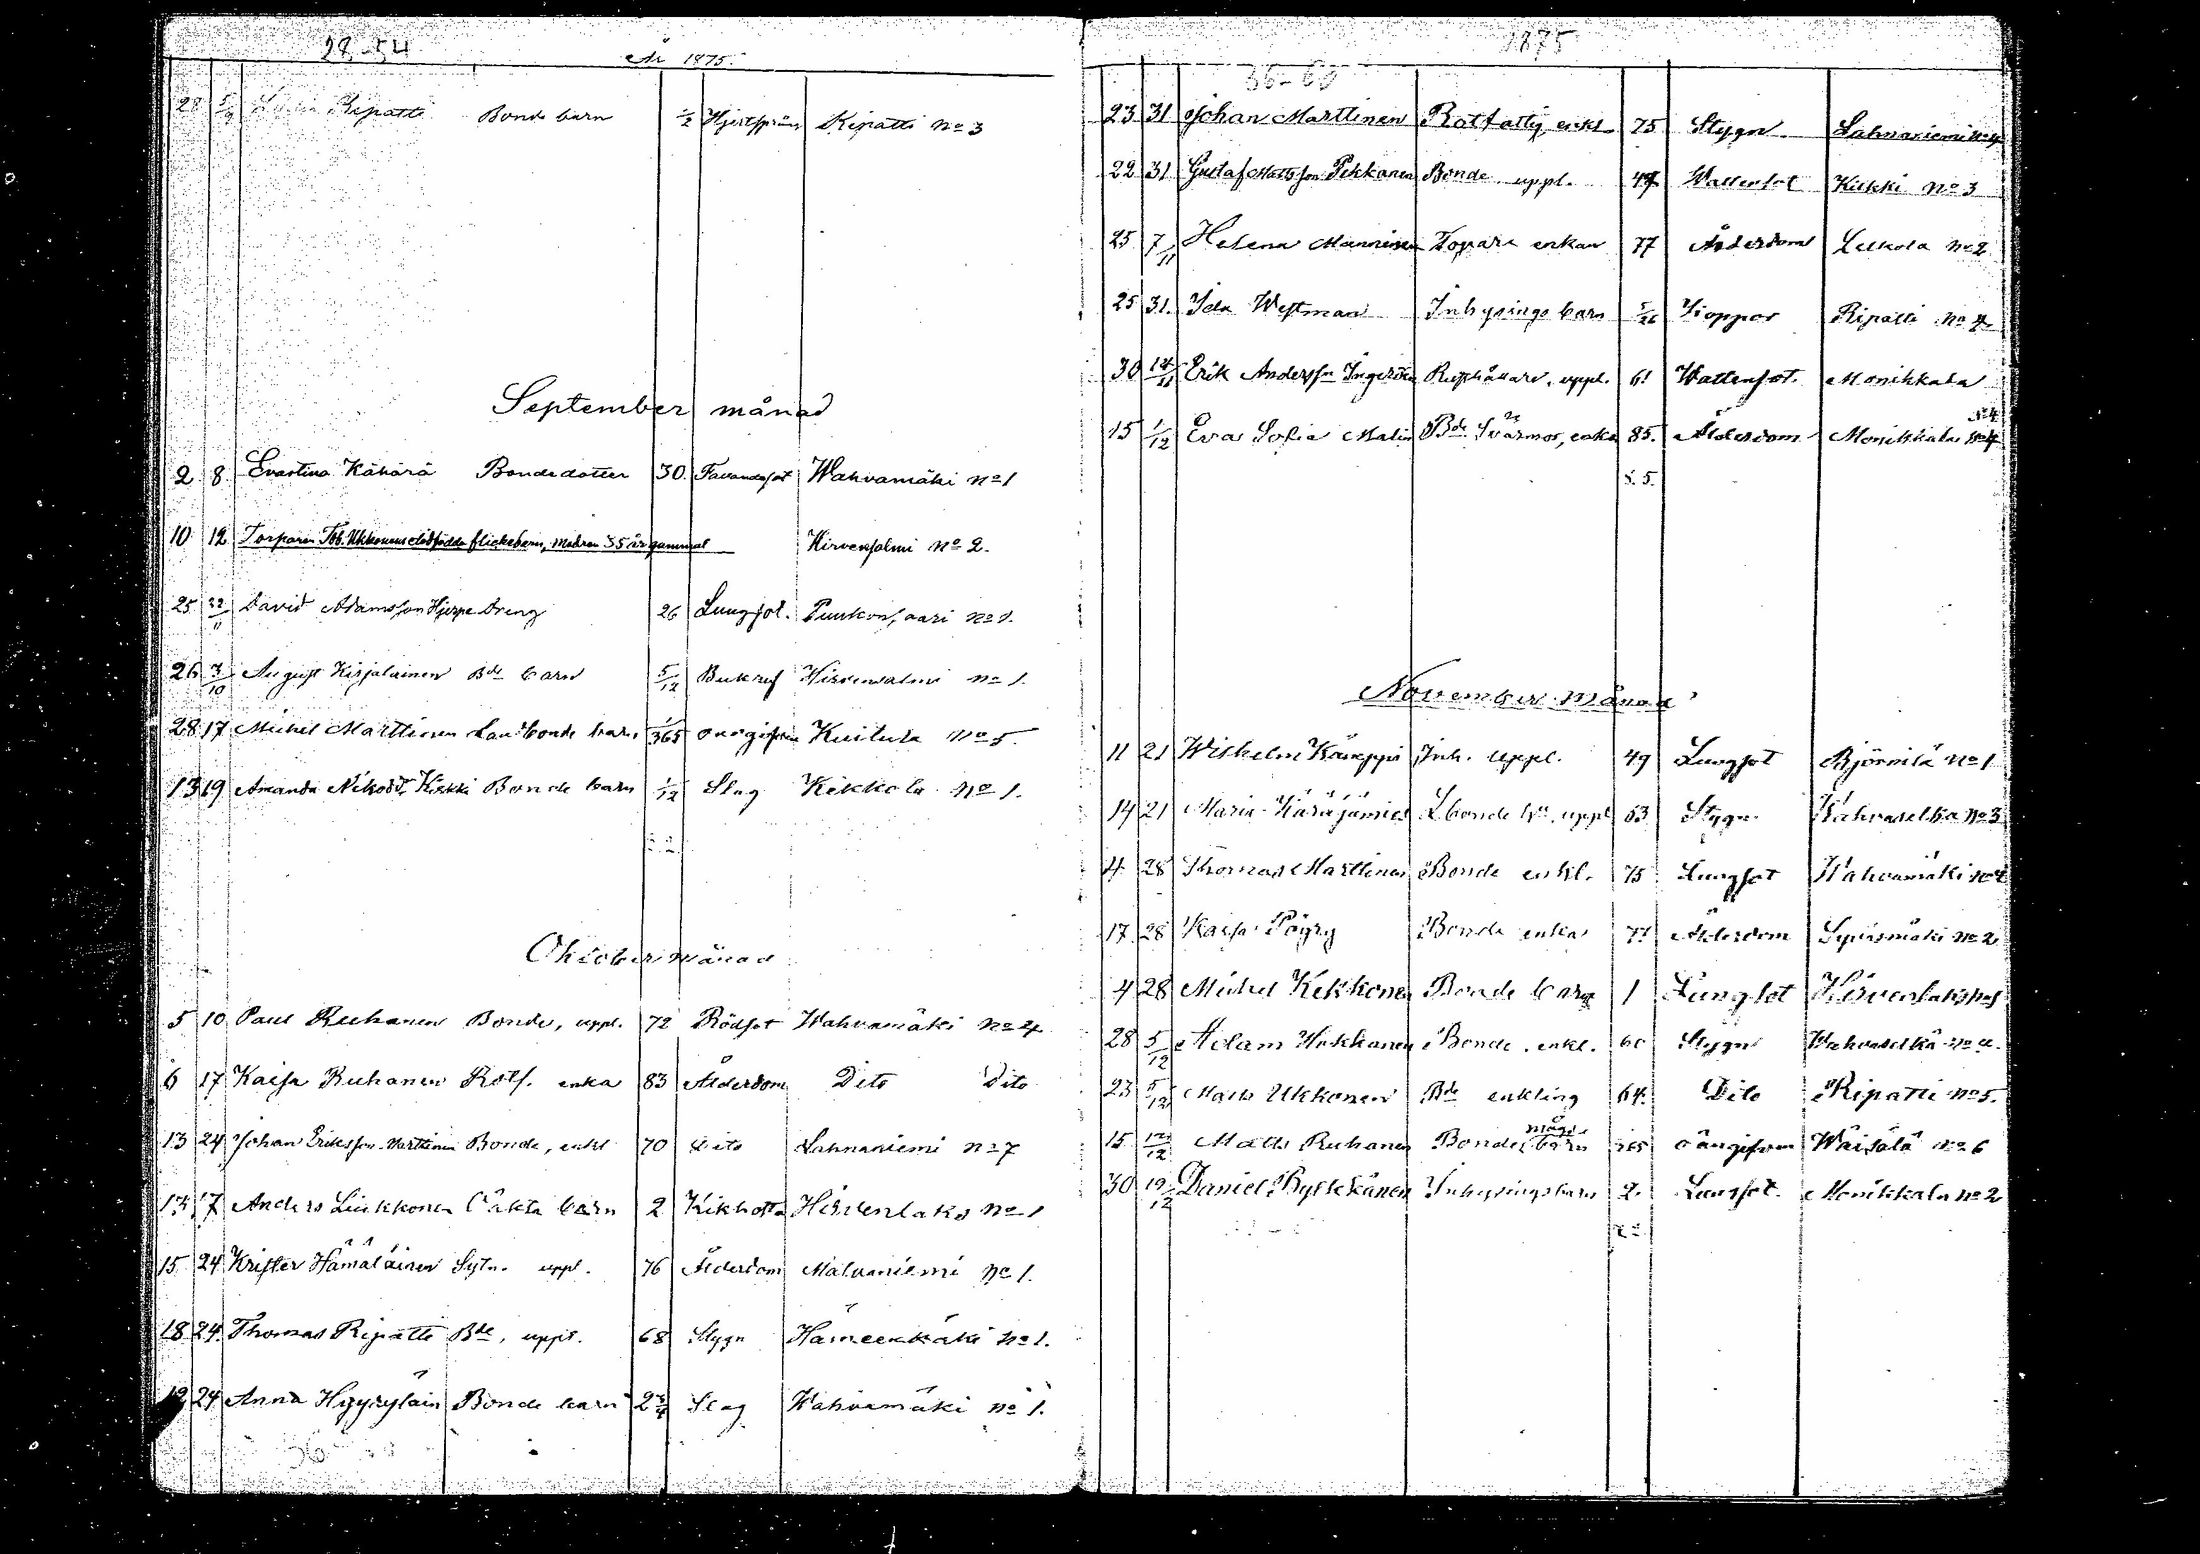 År 1875.
28 5/9 Ripatti Bonde barn 1/2 Hjertspräng Ripatti No 3
September månad
2 8 Evastina Kähärä Bondedotter 30 Wahvamäki No 1
10 12 Torparen Tob. Ukkonens dödfödda flickebarn, modren 35 år gammal Hirvensalmi No 2.
25 22/11 David Adamsson Hjerpe Dreng 26 Lungsot. Puukonsaari No 1.
26 3/10 August Kirjalainen Bde barn 5/12 Bukref Hirvensalmi No 1.
28 17 Michel Marttinen Landbonde barn 1/365 Kuitula No 5.
13 19 Amanda Kiekki Bonde barn 1/12 Slag Kekkola No 1.
Oktober månad
5 10 Paul Ruhanen Bonde, uppl. 72 Rödsot Wahvamäki No 4
6 17 Kaisa Ruhanen Rotf. enka 83 Ålderdom Dito Dito
13 24 Johan Eriksson Marttinen Bonde, enkl 70 Dito Lahnaniemi No 7
13 17 Anders Liukkonen Oäkta barn 2 Kikhosta Hirvenlaks No 1
15 24 Krister Hämäläinen Sytn. uppl. 76 Ålderdom Malvaniemi No 1.
18 24 Thomas Ripatti Bde, uppl. 68 Stygn Hämeenkäki No 1.
19 24 Anna Hyyryläin Bonde barn 2 3/4 Slag Wahvamäki No 1.
1875
23 31 Johan Marttinen Rotfattig, enkl 75 Stygn Lahnaniemi
22 31 Gustaf Mattsson Pekkanen Bonde uppl. 49 Wattensot Kiekki No 3
25 7/11 Helena Manninen Torpare enkan 77 Ålderdom Leikola No 2
25 31. Ida Westman Inhysings barn 5/26 Koppor Ripatti No 4
30 14/11 Erik Andersson Rusthållare, uppl. 61 Wattensot. Monikkala
15 1/12 Eva Sofia Malin Bde Svärmor, enka 85. Ålderdom Monikkala No 4
November månad
11 21 Wilhelm Käuppi Inh. uppl. 49 Lungsot Björnilä No 1
14 21 Maria Käräjämies Lbonde uppl 63 Stygn Wahvaselkä No 3
4 28 Thomas Marttinen Bonde enkl. 75 Lungsot Wahvamäki
17 28 Kaisa Pöyry Bonde enka 77 Ålderdom Syväsmäki No 2
4 28 Michel Kekkonen Bonde barn 1 Lungsot Hirvenlaks
28 5/12 Adam Hokkanen Bonde. enkl. 60 Stygn Wahvaselkä No 4.
23 5/12 Mats Ukkonen Bde enkling 64. Dito Ripatti No 5.
15 12/12 Matts Ruhanen Bonde mågs barn oangifven Wäisälä No 6
30 19/12 Daniel Pylkkänen Inhysingsbarn 2. Lungsot. Monikkala No 2